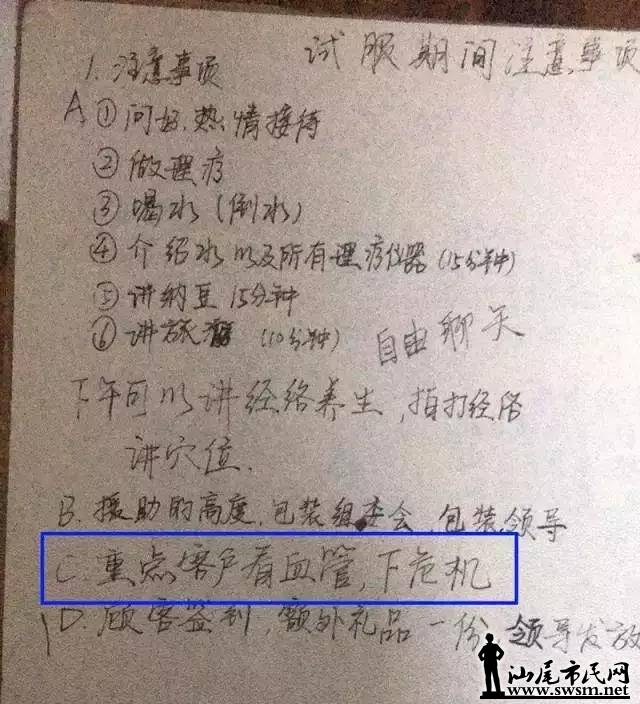 试服期间注意事项
1. 注意事项
A ① 问好,热情接待
② 做理疗
③ 喝水(倒水)
④ 介绍水以及所有理疗仪器(15分钟)
⑤ 讲纳豆15分钟
⑥ 讲旅 (10分钟) 自由聊天
下午可以讲经络养生,拍打经络
讲穴位.
B. 援助的高度,包装组委会,包装领导
C. 重点客户看血管,下危机
D. 顾客签到,额外礼品一份 领导发放
汕尾市民网
www.swsm.net